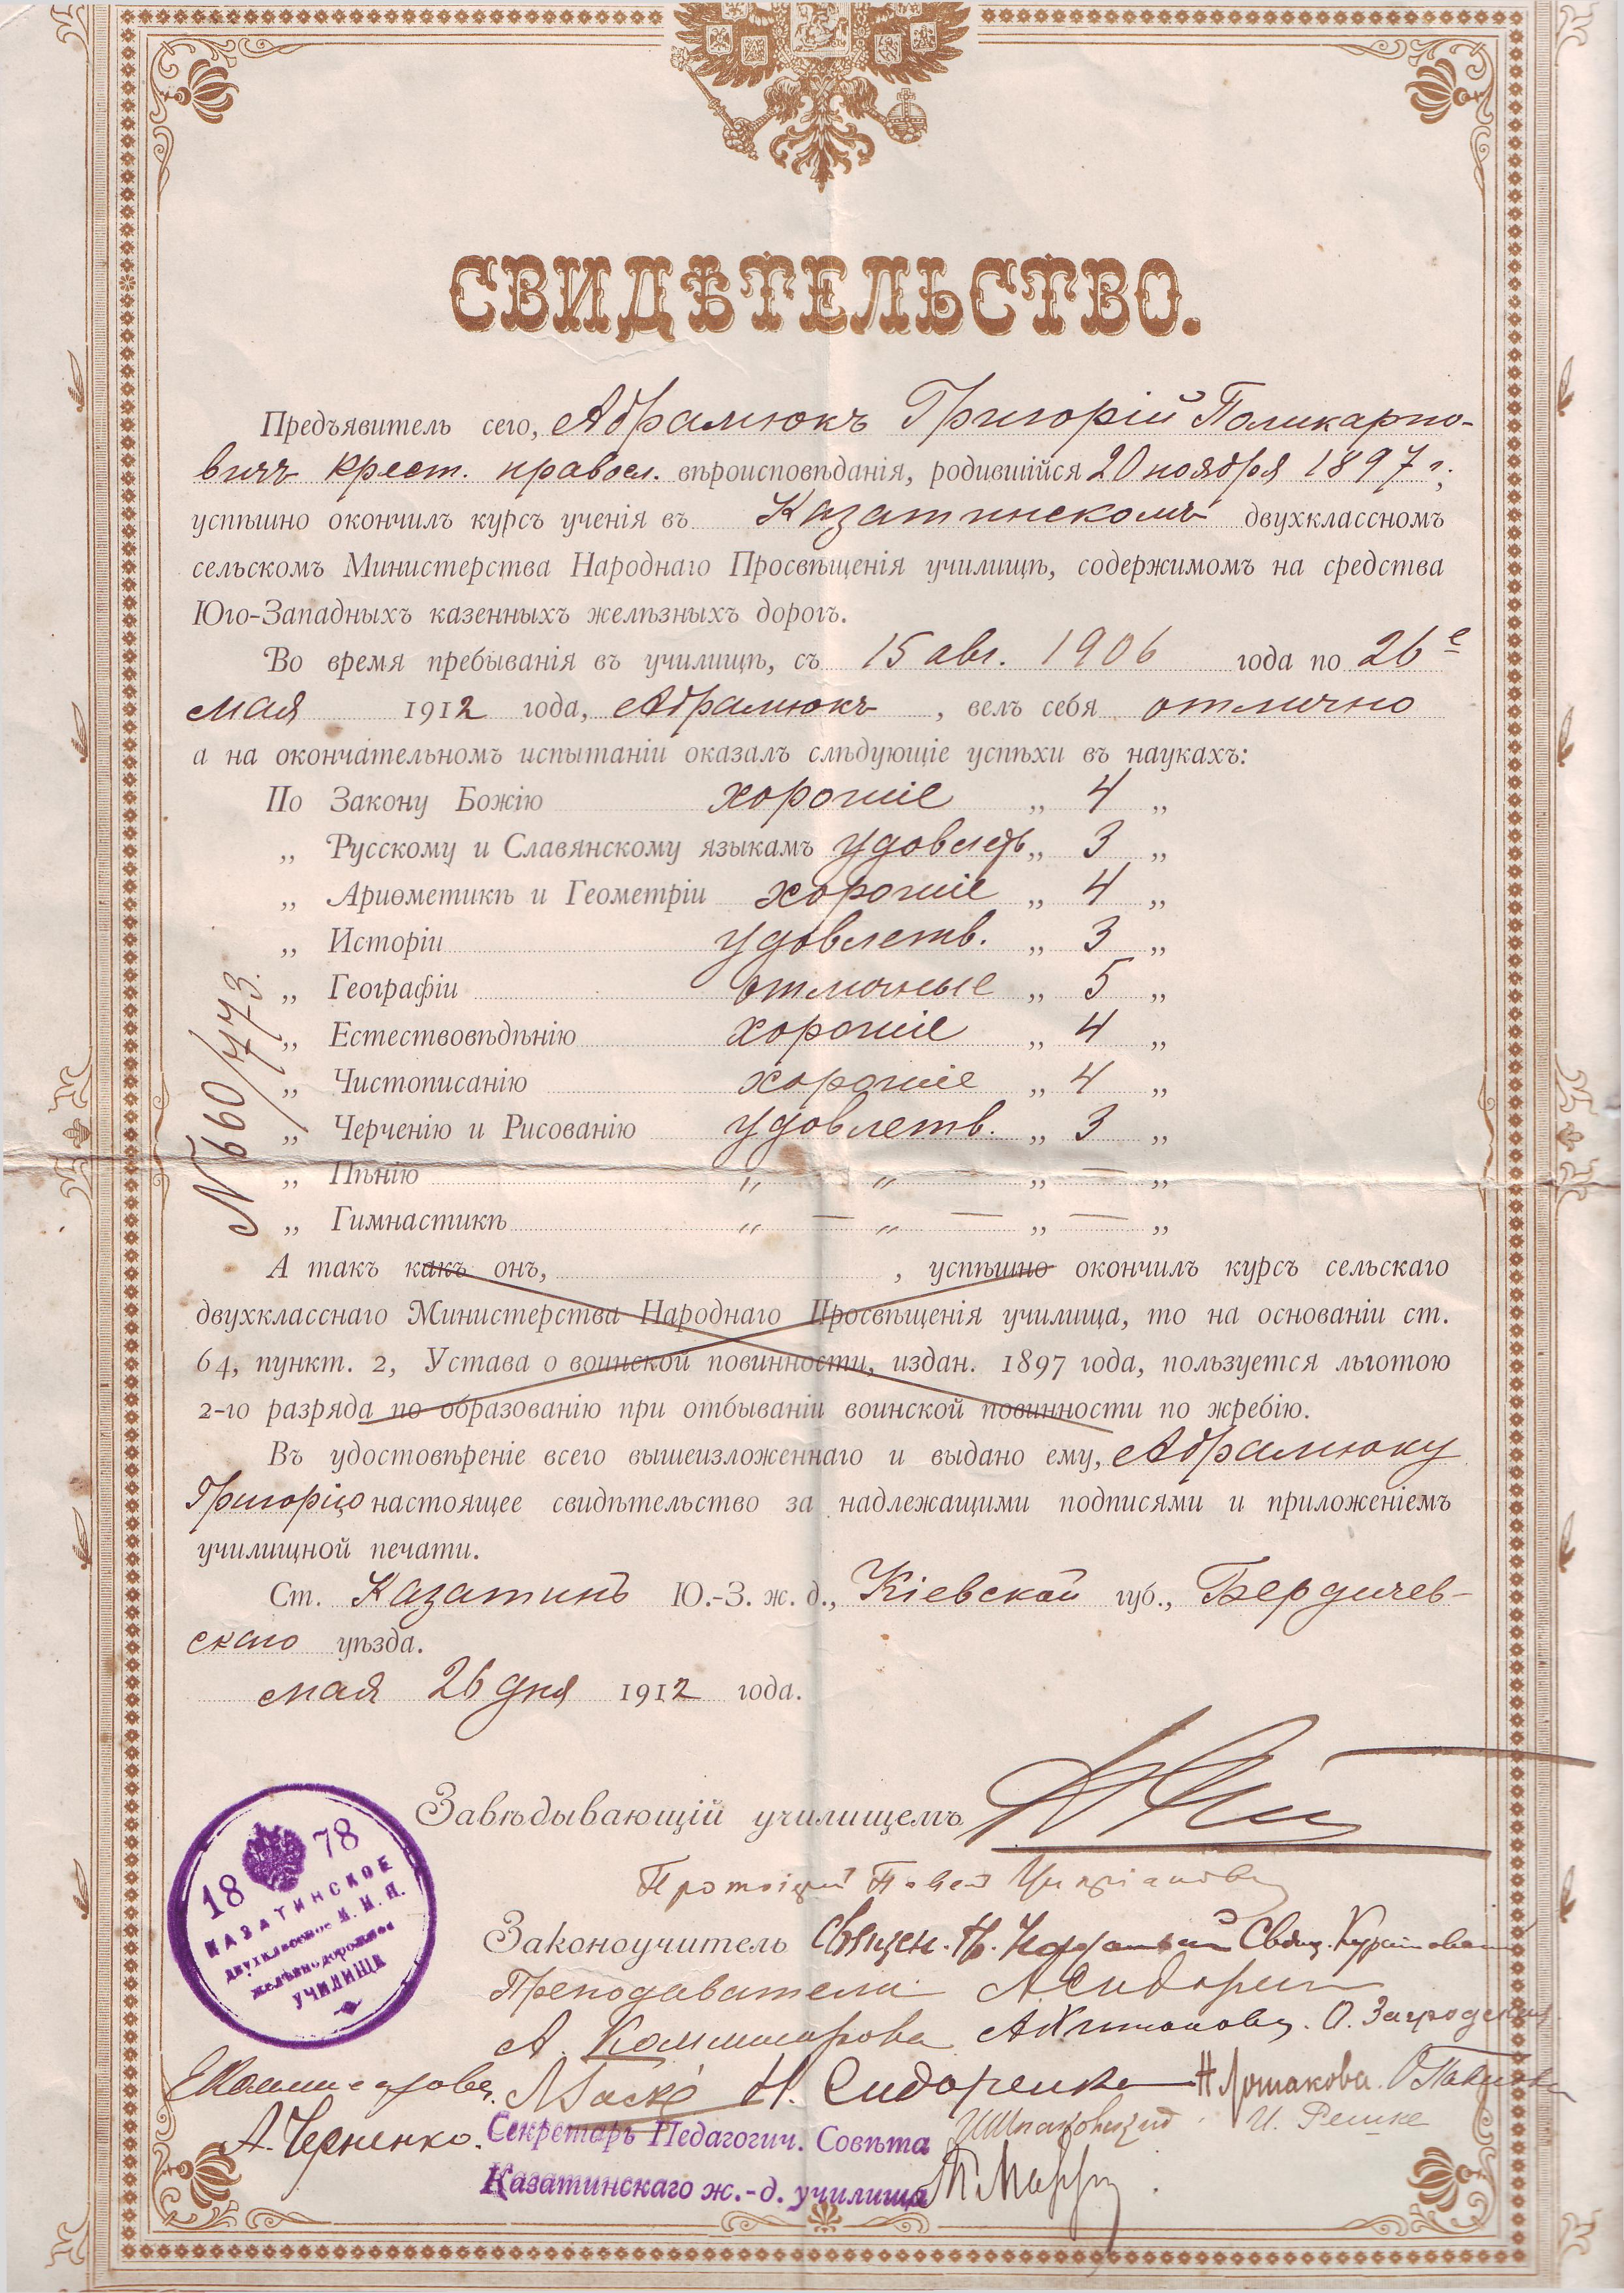 СВИДѢТЕЛЬСТВО.
Предъявитель сего, Абрамюкъ Григорій Поликарпо-
вичъ крест. правосл. вѣроисповѣданія, родившійся 20 ноября 1897 г.,
успѣшно окончилъ курсъ ученія въ Казатинскомъ двухклассномъ
сельскомъ Министерства Народнаго Просвѣщенія училищѣ, содержимомъ на средства
Юго-Западныхъ казенныхъ желѣзныхъ дорогъ.
Во время пребыванія въ училищѣ, съ 15 авг. 1906 года по 26е
мая 1912 года, Абрамюкъ, велъ себя отлично
а на окончательномъ испытаніи оказалъ слѣдующіе успѣхи въ наукахъ:
По Закону Божію хорошіе „ 4 „
„ Русскому и Славянскому языкамъ удовлетв „ 3 „
„ Ариѳметикѣ и Геометріи хорошіе „ 4 „
„ Исторіи удовлетв. „ 3 „
„ Географіи отличные „ 5 „
„ Естествовѣдѣнію хорошіе „ 4 „
„ Чистописанію хорошіе „ 4 „
„ Черченію и Рисованію удовлетв. „ 3 „
„ Пѣнію „ — „ — „ — „
„ Гимнастикѣ „ — „ — „ — „
№ 660/473.
А такъ какъ онъ, , успѣшно окончилъ курсъ сельскаго
двухкласснаго Министерства Народнаго Просвѣщенія училища, то на основаніи ст.
64, пункт. 2, Устава о воинской повинности, издан. 1897 года, пользуется льготою
2-го разряда по образованію при отбываніи воинской повинности по жребію.
Въ удостовѣреніе всего вышеизложеннаго и выдано ему, Абрамюку
Григорію настоящее свидѣтельство за надлежащими подписями и приложеніемъ
училищной печати.
Ст. Казатинъ Ю.-З. ж. д., Кіевской губ., Бердичев-
скаго уѣзда.
мая 26 дня 1912 года.
Завѣдывающій училищемъ
Протоіерей Павел
Законоучитель Священ.
Преподаватели А. Сидорен
А. Коммисарова О. Загродская
Н. Сидоренко Н. Лошакова.
А. Черненко.
Секретарь Педагогич. Совѣта
Казатинскаго ж.-д. училища
18 78
КАЗАТИНСКОЕ
двухклассное М. Н. П.
желѣзнодорожное
УЧИЛИЩЕ